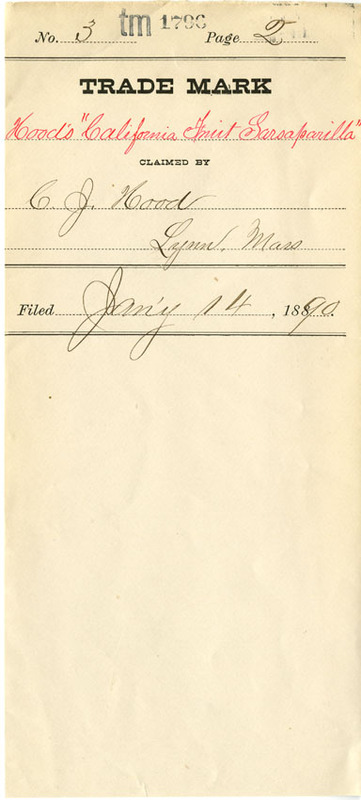 tm 1796
No. 3 Page 2
TRADE MARK
Hood's "California Fruit Sarsaparilla"
CLAIMED BY
C. J. Hood
Lynn, Mass
Filed Jan'y 14, 1890.